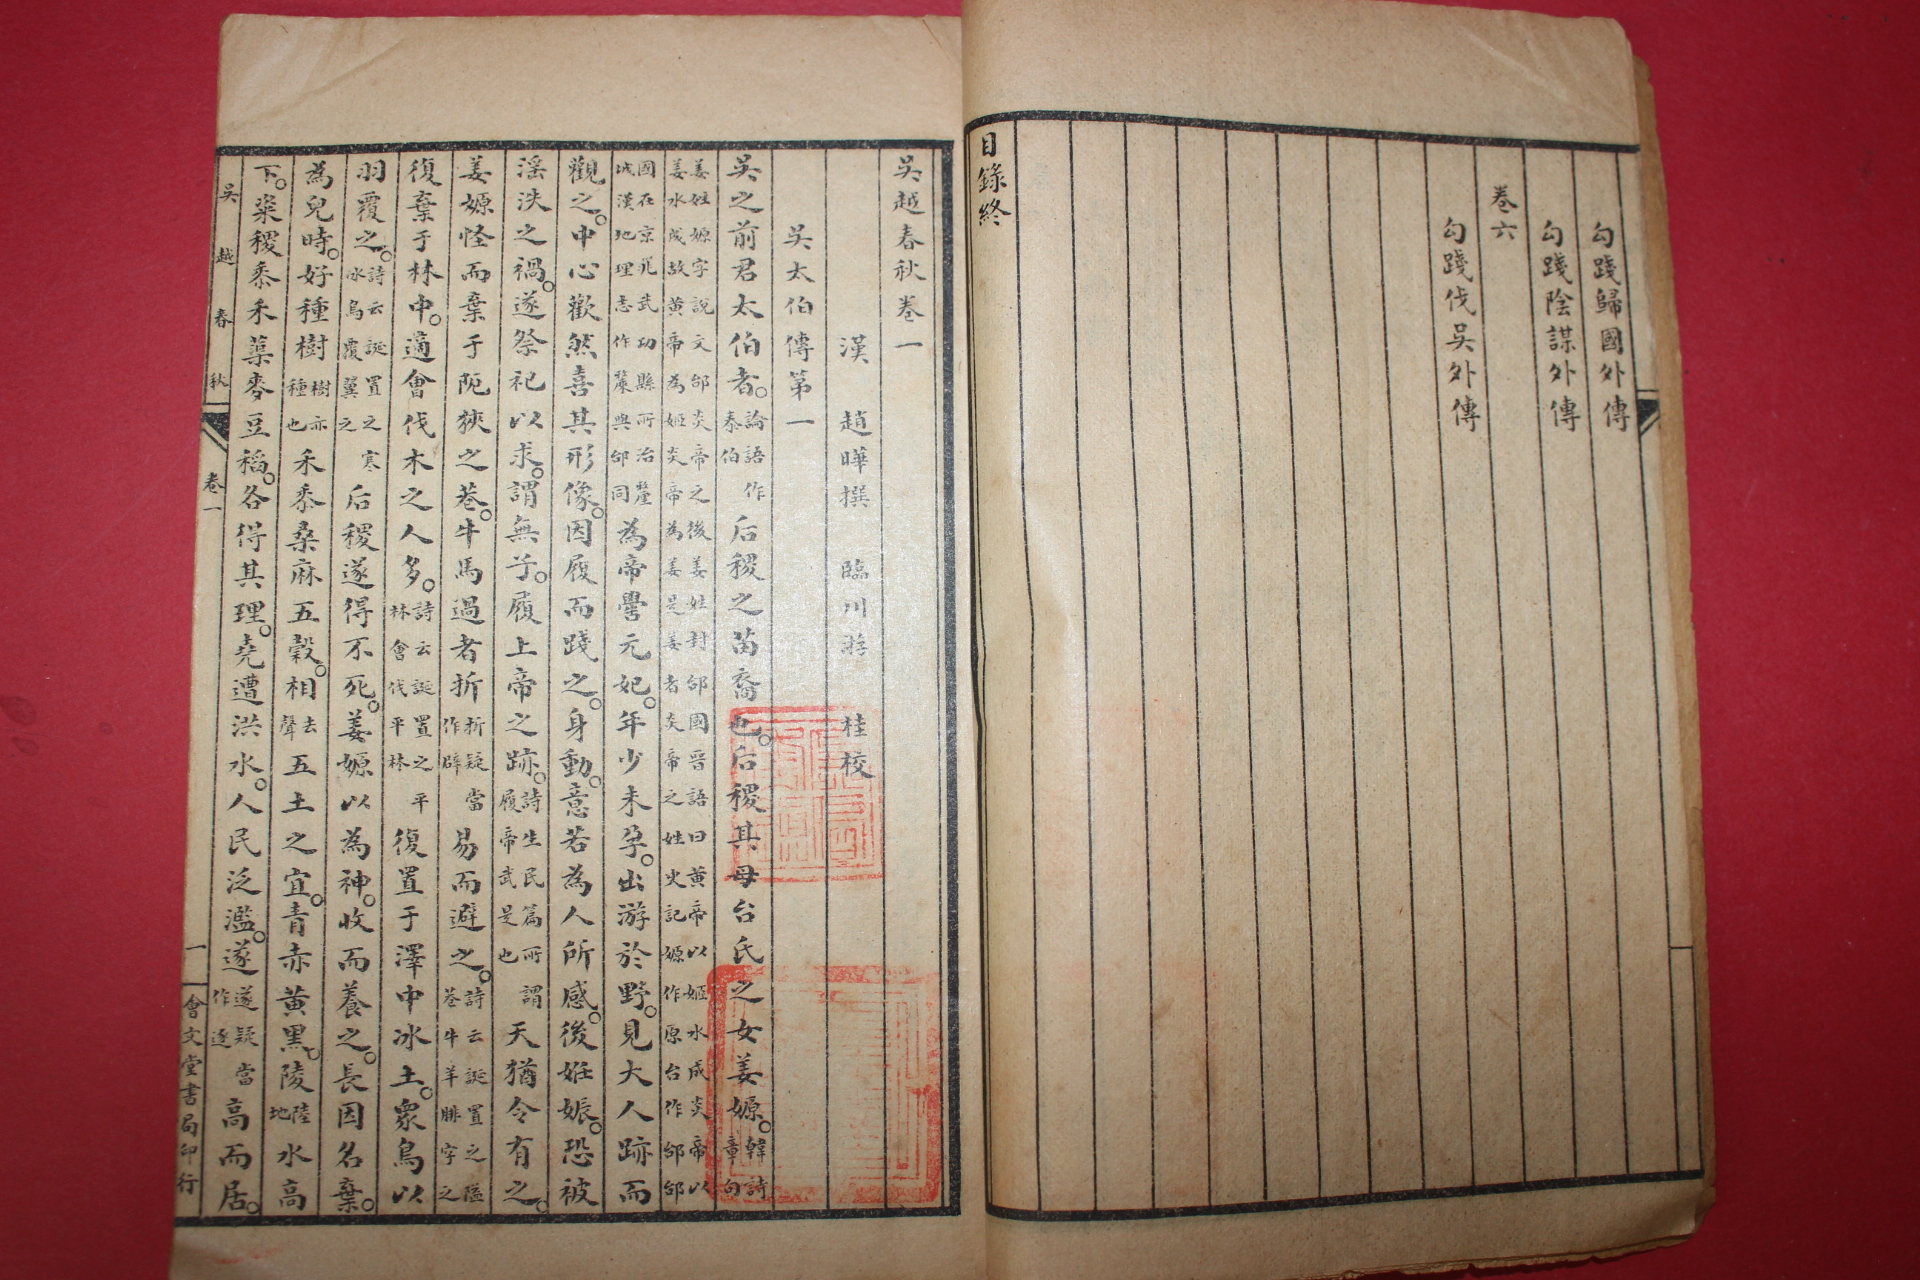 勾踐歸國外傳
勾踐陰謀外傳
卷六
勾踐伐吳外傳
目錄終
吳越春秋卷一
漢 趙曄撰 臨川游 桂校
吳太伯傳第一
吳之前君太伯者。論語作泰伯后稷之苗裔也。后稷其母台氏之女姜嫄。韓詩章句
姜姓嫄字說文邰炎帝之後姜姓封邰國晋語曰黃帝以姬水成炎帝以
姜水成故黃帝為姬炎帝為姜是姜者炎帝之姓史記嫄作原台作邰邰
國在京兆武功縣所治釐城漢地理志作斄與邰同為帝嚳元妃。年少未孕。出游於野。見大人跡而
觀之。中心歡然喜其形像。因履而踐之。身動。意若為人所感。後妊娠。恐被
淫泆之禍。遂祭祀以求。謂無子。履上帝之跡。詩生民篇所謂履帝武是也天猶令有之。
姜嫄怪而棄于阨狹之巷。牛馬過者折折疑當作辟易而避之。詩云誕置之隘巷牛羊腓字之
復棄于林中。適會伐木之人多。詩云誕置之平林會伐平林復置于澤中冰土。眾鳥以
羽覆之。詩云誕置之寒冰鳥覆翼之后稷遂得不死。姜嫄以為神。收而養之。長因名棄。
為兒時。好種樹樹亦種也禾黍桑麻五穀。相去聲五土之宜。青赤黃黑。陵陸地水高
下。粢稷黍禾蕖麥豆稻。各得其理。堯遭洪水。人民泛濫。遂遂疑當作逐高而居。
吳越春秋 卷一 一 會文堂書局印行